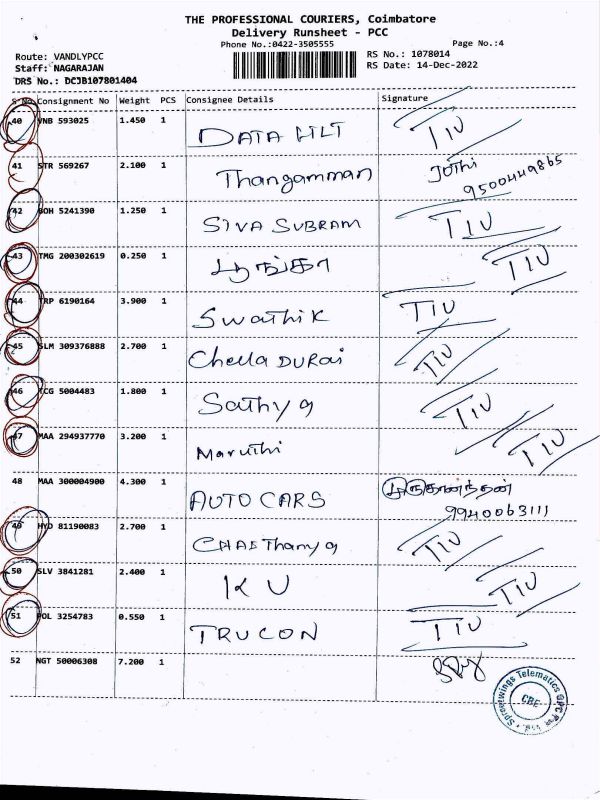 THE PROFESSIONAL COURIERS, Coimbatore
Delivery Runsheet - PCC
Phone No.:0422-3505555
Page No.:4
Route: VANDLYPCC
RS No.: 1078014
Staff: NAGARAJAN
RS Date: 14-Dec-2022
DRS No.: DCJB107801404
S No Consignment No Weight PCS Consignee Details Signature
40 VNB 593025 1.450 1 DATA TIU
41 STR 569267 2.100 1 Thangamman Jothi
9500449865
42 BOH 5241390 1.250 1 SIVA SUBRAM TIU
43 TMG 200302619 0.250 1 TIU
44 TRP 6190164 3.900 1 Swathik TIU
45 SLM 309376888 2.700 1 Chella DURai TIU
46 TCG 5004483 1.800 1 Sathya TIU
47 MAA 294937770 3.200 1 Maruthi TIU
48 MAA 300004900 4.300 1 AUTO CARS முருகானந்தன்
9940063111
49 HYD 81190083 2.700 1 CHAEThanya TIU
50 SLV 3841281 2.400 1 K U TIU
51 POL 3254783 0.550 1 TRUCON TIU
52 NGT 50006308 7.200 1
Telematics
CBE